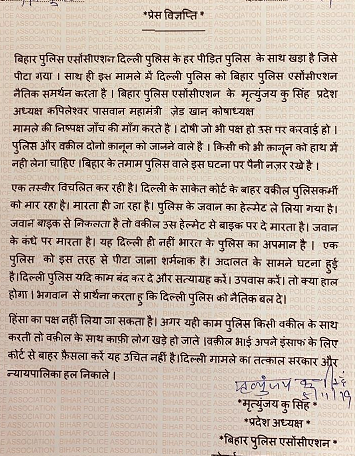 *प्रेस विज्ञप्ति*
बिहार पुलिस एसोंसीएशन दिल्ली पुलिस के हर पीड़ित पुलिस के साथ खड़ा है जिसे
पीटा गया । साथ ही इस मामले में दिल्ली पुलिस को बिहार पुलिस एसोंसीएशन
नैतिक समर्थन करता है । बिहार पुलिस एसोंसीएशन के मृत्युंजय कु सिंह प्रदेश
अध्यक्ष कपिलेश्वर पासवान महामंत्री ज़ेड खान कोषाध्यक्ष
मामले की निष्पक्ष जाँच की माँग करते है । दोषी जो भी पक्ष हो उस पर करवाई हो ।
पुलिस और वकील दोनो क़ानून को जानने वाले है । किसी को भी क़ानून को हाथ में
नही लेना चाहिए ।बिहार के तमाम पुलिस वाले इस घटना पर पैनी नज़र रखे है ।
एक तस्वीर विचलित कर रही है। दिल्ली के साकेत कोर्ट के बाहर वकील पुलिसकर्मी
को मार रहा है। मारता ही जा रहा है। पुलिस के जवान का हेल्मेट ले लिया गया है।
जवान बाइक से निकलता है तो वकील उस हेल्मेट से बाइक पर दे मारता है। जवान
के कंधे पर मारता है। यह दिल्ली ही नहीं भारत के पुलिस का अपमान है । एक
पुलिस को इस तरह से पीटा जाना शर्मनाक है। अदालत के सामने घटना हुई
है।दिल्ली पुलिस यदि काम बंद कर दे और सत्याग्रह करें। उपवास करें। तो क्या हाल
होगा। भगवान से प्रार्थना करता हु कि दिल्ली पुलिस को नैतिक बल दे।
हिंसा का पक्ष नहीं लिया जा सकता है। अगर यही काम पुलिस किसी वकील के साथ
करती तो वक़ील के साथ काफ़ी लोग खड़े हो जाते ।वक़ील भाई अपने इंसाफ के लिए
कोर्ट से बाहर फ़ैसला करें यह उचित नहीं है।दिल्ली मामले का तत्काल सरकार और
न्यायपालिका हल निकाले ।
मृत्युंजय कु
*मृत्युंजय कु सिंह*
*प्रदेश अध्यक्ष*
*बिहार पुलिस एसोंसीएशन*